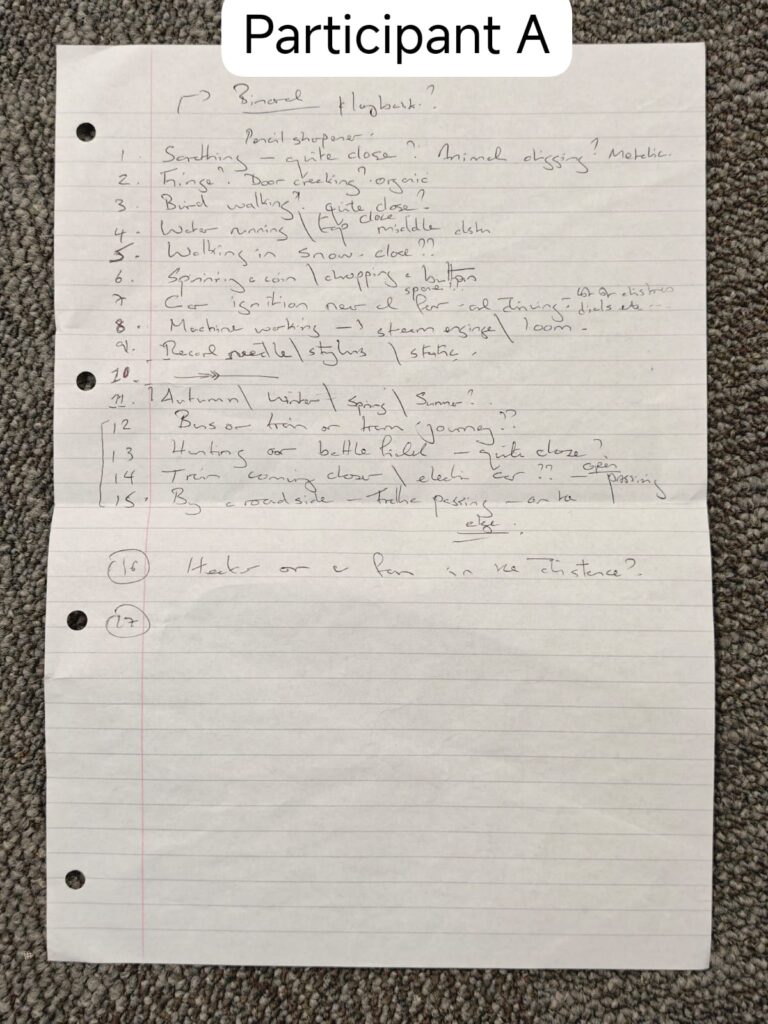 Participant A
Binoral playback?
Pencil sharpener.
1. Scratching - quite close? Animal digging? Metallic.
2. Fringe? Door creeking? organic
3. Bird walking? quite close?
4. Water running \ tap close middle distn
5. Walking in snow - close??
6. Spinning a coin \ chopping a button
7 Car ignition near driving - dials etc
8. Machine working - steam engine \ loom -
9. Record needle \ stylus \ static.
10.
11. ? Autumn \ Winter \ Spring \ Summer?
12 Bus or train or tram journey??
13 Hunting or battle field - quite close?
14 Train coming closer \ electric car ?? - open passing
15. By a roadside - Traffic passing -
edge.
16 Heater or a fan in the distance?
17